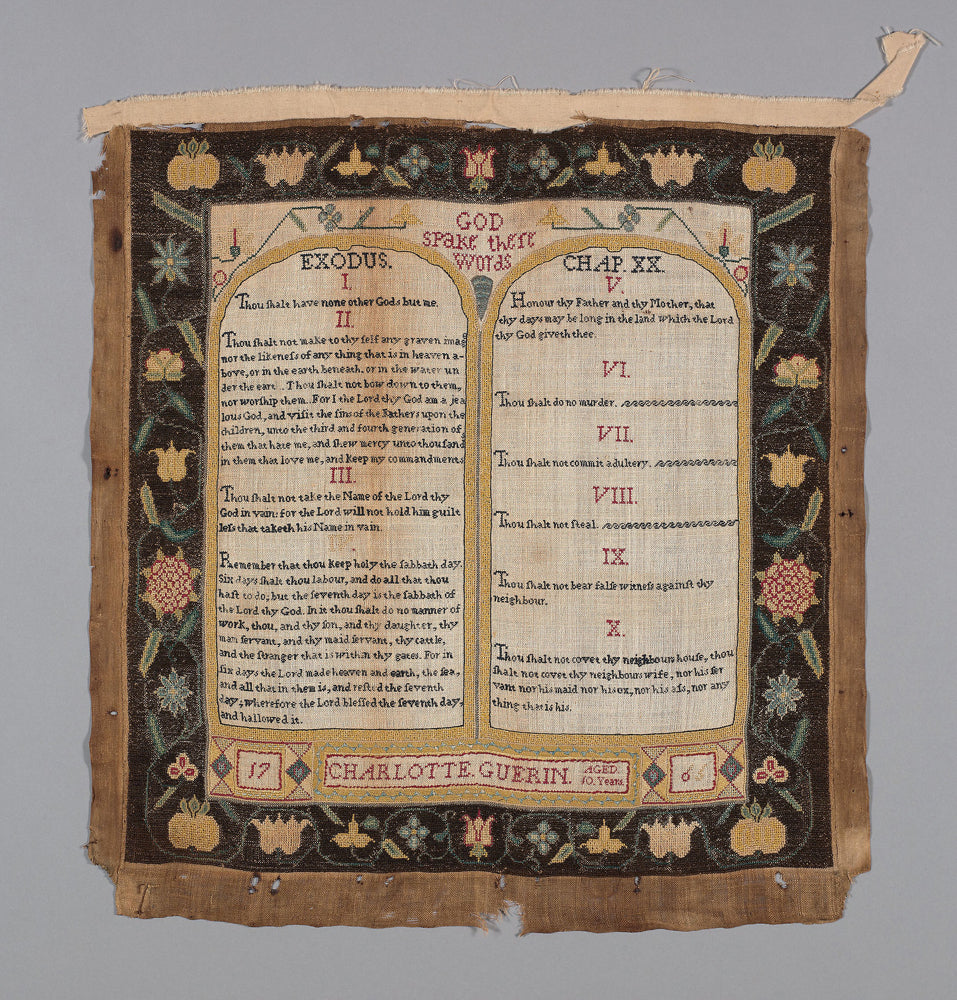 GOD
spake these
words
EXODUS.
I.
Thou ſhalt have none other Gods but me.
II.
Thou ſhalt not make to thy ſelf any graven imag
nor the likeneſs of any thing that is in heaven a-
bove, or in the earth beneath, or in the water un
der the eart... Thou ſhalt not bow down to them,
nor worſhip them.. For I the Lord thy God am a jea
lous God, and viſit the ſins of the Fathers upon the
children, unto the third and fourth generation of
them that hate me, and ſhew mercy unto thouſand
in them that love me, and keep my commandments
III.
Thou ſhalt not take the Name of the Lord thy
God in vain: for the Lord will not hold him guilt
leſs that taketh his Name in vain.
Remember that thou keep holy the ſabbath day.
Six days ſhalt thou labour, and do all that thou
haſt to do; but the ſeventh day is the ſabbath of
the Lord thy God. In it thou ſhalt do no manner of
work, thou, and thy ſon, and thy daughter, thy
man ſervant, and thy maid ſervant, thy cattle,
and the ſtranger that is within thy gates. For in
ſix days the Lord made heaven and earth, the ſea,
and all that in them is, and reſted the ſeventh
day; wherefore the Lord bleſſed the ſeventh day,
and hallowed it.
CHAP. XX.
V.
Honour thy Father and thy Mother, that
thy days may be long in the land which the Lord
thy God giveth thee.
VI.
Thou ſhalt do no murder.
VII.
Thou ſhalt not commit adultery.
VIII.
Thou ſhalt not ſteal.
IX.
Thou ſhalt not bear falſe witneſs againſt thy
neighbour.
X.
Thou ſhalt not covet thy neighbours houſe, thou
ſhalt not covet thy neighbours wife, nor his ſer
vant nor his maid nor his ox, nor his aſs, nor any
thing that is his.
17
CHARLOTTE. GUERIN.
AGED.
10. Years.